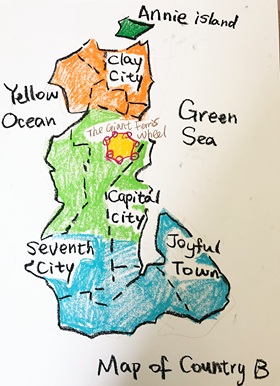 Annie island
Clay
City
Yellow
Ocean
Green
Sea
The Giant Ferris
Wheel
Capital
City
Seventh
City
Joyful
Town
Map of Country B